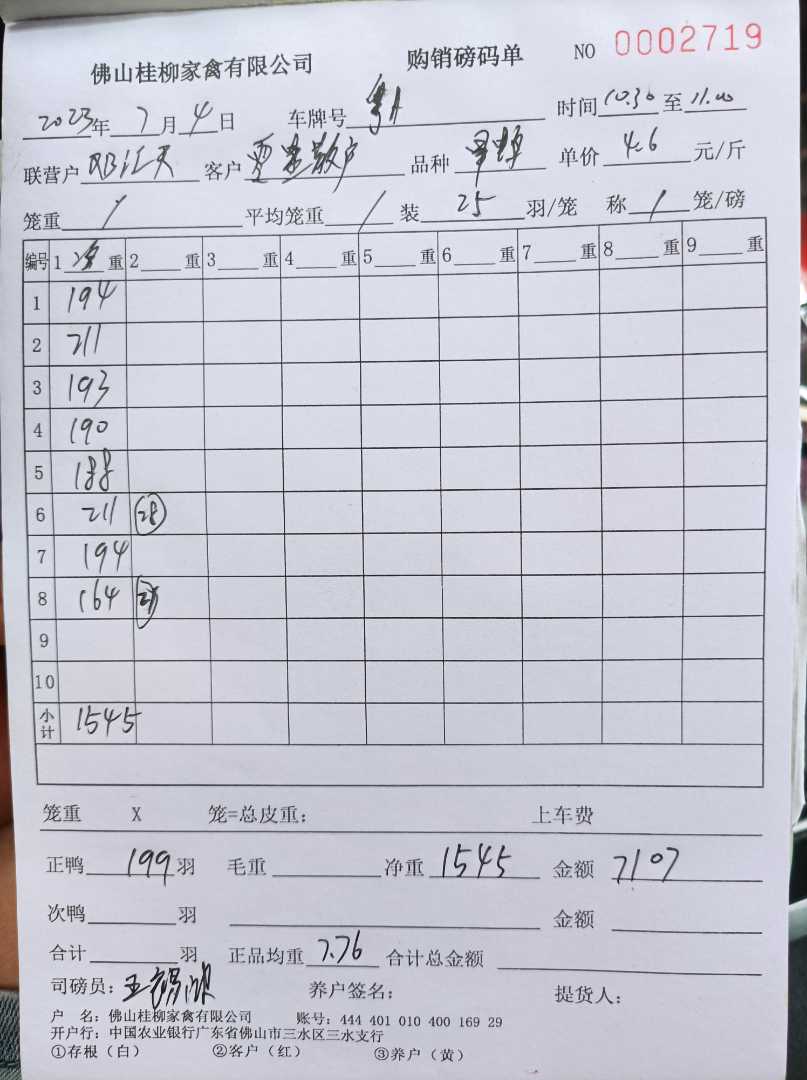 佛山桂柳家禽有限公司 购销磅码单 NO 0002719
2023年7月4日 车牌号粤A 时间10.30至11.00
联营户邓江天 客户贾思散户 品种 单价4.6元/斤
笼重/ 平均笼重/ 装25羽/笼 称/笼/磅
编号 1净重 2重 3重 4重 5重 6重 7重 8重 9重
1 194
2 211
3 193
4 190
5 188
6 211 28
7 194
8 164 21
9
10
小计 1545
笼重 X 笼=总皮重: 上车费
正鸭199羽 毛重 净重1545 金额7107
次鸭 羽 金额
合计 羽 正品均重7.76 合计总金额
司磅员: 王锡 养户签名: 提货人:
户 名: 佛山桂柳家禽有限公司 账号: 444 401 010 400 169 29
开户行: 中国农业银行广东省佛山市三水区三水支行
①存根(白) ②客户(红) ③养户(黄)